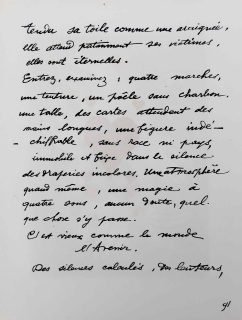 tendu sa toile comme une araignée,
elle attend patiemment ses victimes,
elles sont éternelles.
Entrez, examinez, quatre marches,
une tenture, un poêle sans charbon.
une table, des cartes attendent des
mains longues, une figure indé-
-chiffrable, sans race ni pays,
immobile et figée dans le silence
des draperies incolores. Une atmosphère
quand même, une magie à
quatre sous, aucun doute, quel-
que chose s'y passe.
C'est vieux comme le monde
et l'Avenir.
Des silences calculés, des lenteurs,
91